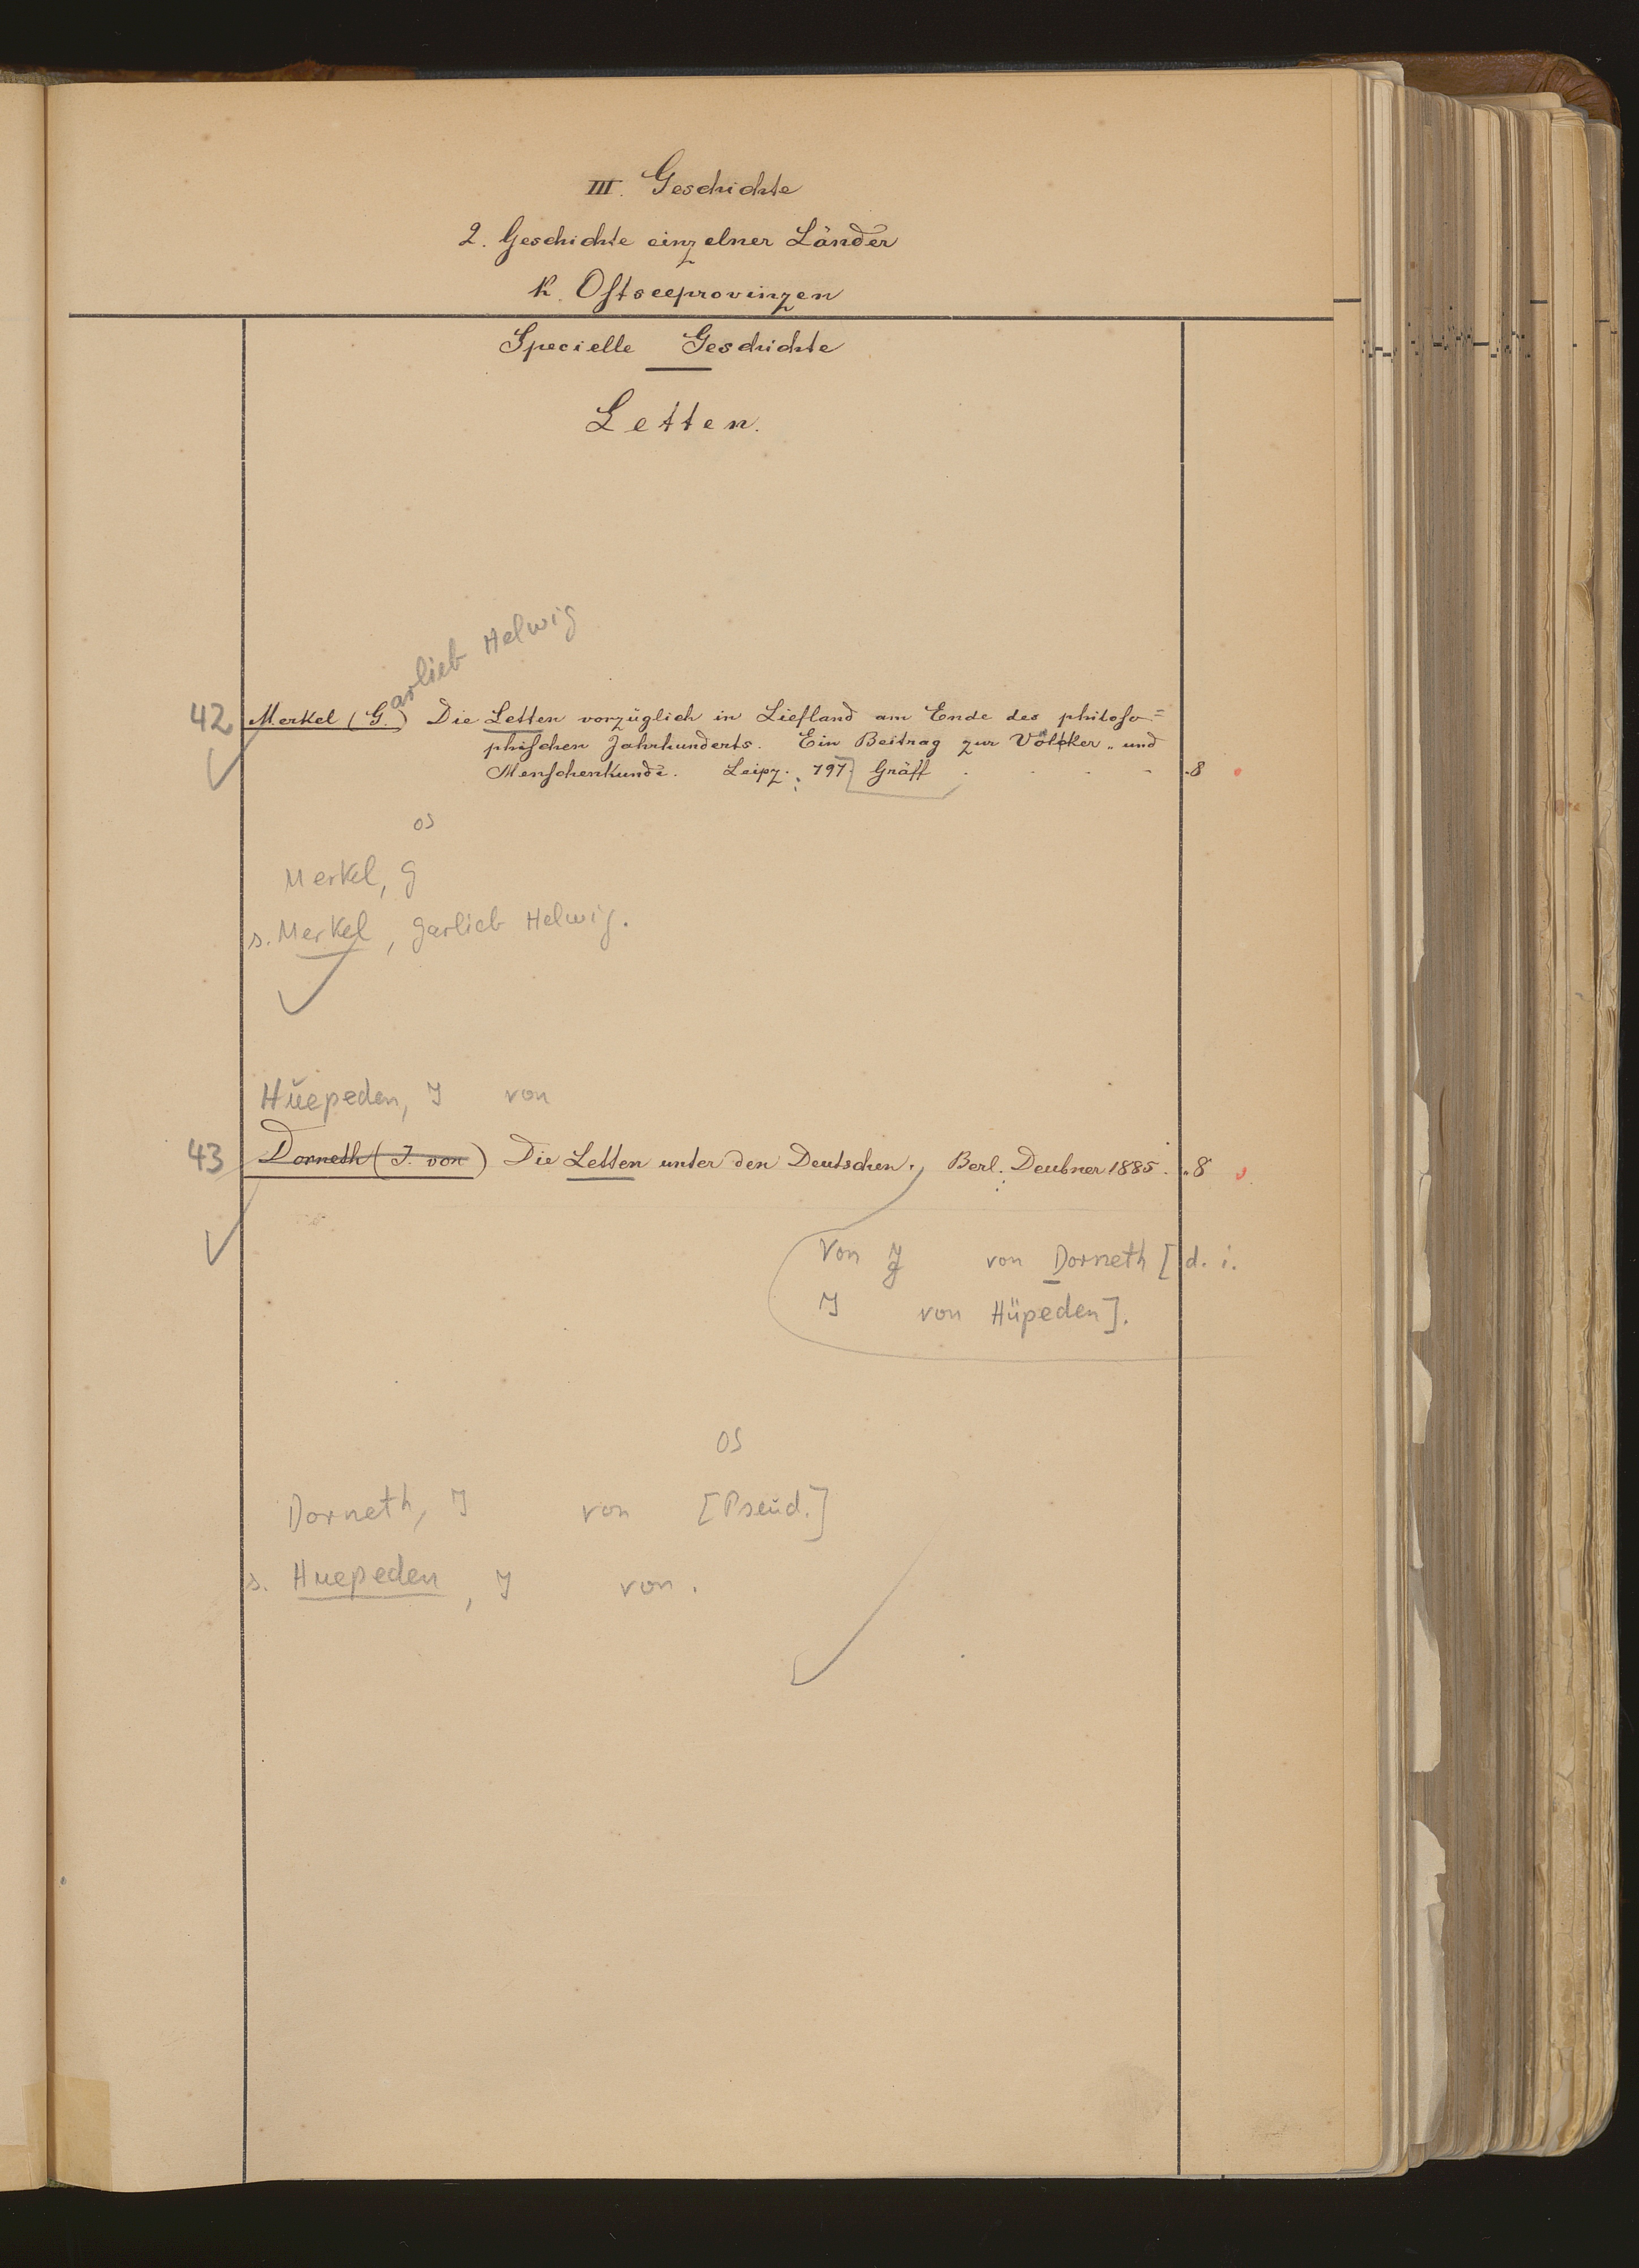 III. Geschichte
2. Geschichte einzelner Länder
k. Ostseeprovinzen
Specielle Geschichte
Letten.
arlieb Helwig
42 Merkel (G.) Die Letten vorzüglich in Liefland am Ende des philoso=
phischen Jahrhunderts. Ein Beitrag zur Völker- und
Menschenkunde. Leipz. 797. Gräff . . . . 8
OS
Merkel, G
s. Merkel, Garlieb Helwig.
Hüepeden, J von
43 Dorneth (J. von) Die Letten unter den Deutschen. Berl. Deubner 1885. 8
Von J von Dorneth [d. i.
J von Hüpeden].
OS
Dorneth, J von [Pseud.]
s. Huepeden, J von.